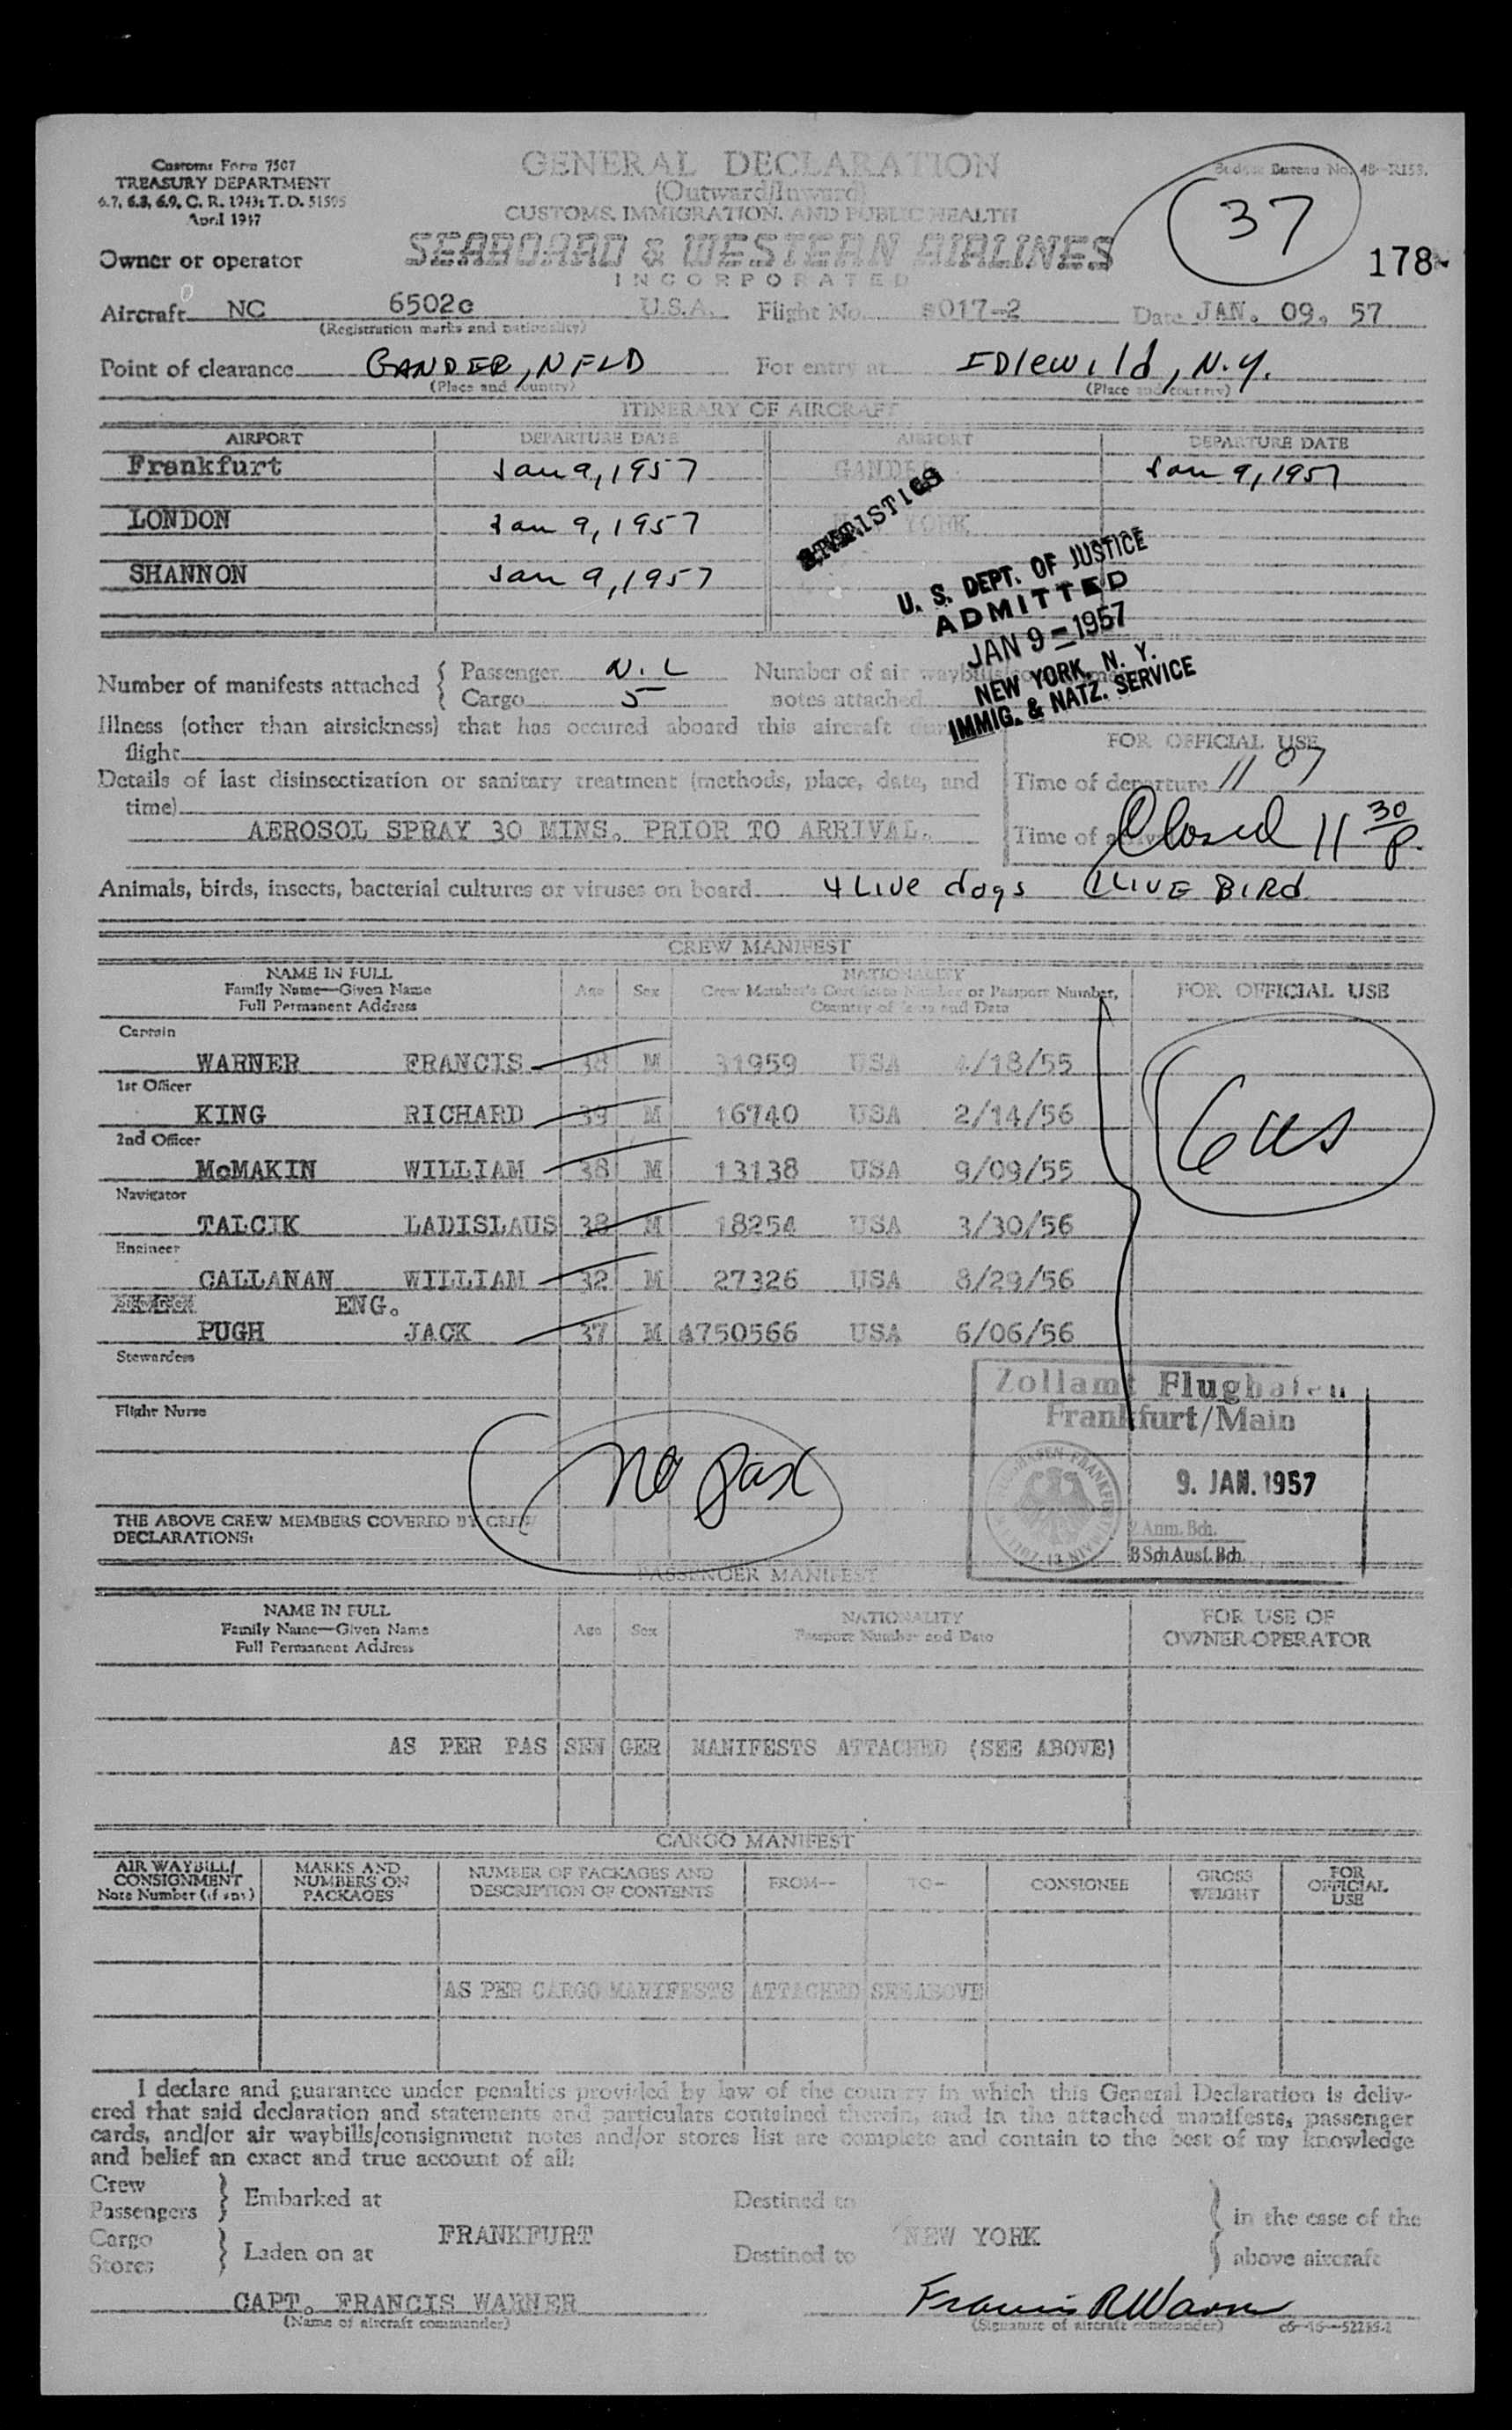 Customs Form 7507
TREASURY DEPARTMENT
6.7, 6.8, 6.9, C. R. 1943; T. D. 51595
April 1947
GENERAL DECLARATION
(Outward/Inward)
CUSTOMS, IMMIGRATION, AND PUBLIC HEALTH
Budget Bureau No. 48-R153.
37
178-
Owner or operator SEABOARD & WESTERN AIRLINES
INCORPORATED
Aircraft NC 6502c U.S.A. Flight No. 017-2 Date JAN. 09. 57
(Registration marks and nationality)
Point of clearance GANDER, NFLD For entry at IDlewild, N.Y.
(Place and country) (Place and country)
ITINERARY OF AIRCRAFT
AIRPORT DEPARTURE DATE AIRPORT DEPARTURE DATE
Frankfurt Jan 9, 1957 GANDER Jan 9, 1957
LONDON Jan 9, 1957 YORK
SHANNON Jan 9, 1957
STATISTICS
U. S. DEPT. OF JUSTICE
ADMITTED
JAN 9 - 1957
NEW YORK, N. Y.
IMMIG. & NATZ. SERVICE
Number of manifests attached { Passenger NIL Number of air waybills
{ Cargo 5 notes attached
Illness (other than airsickness) that has occured aboard this aircraft
flight
FOR OFFICIAL USE
Details of last disinsectization or sanitary treatment (methods, place, date, and
time)
Time of departure 11 07
AEROSOL SPRAY 30 MINS. PRIOR TO ARRIVAL.
Time of Closed 11 30 P.
Animals, birds, insects, bacterial cultures or viruses on board 4 Live dogs 1 LIVE BIRd
CREW MANIFEST
NAME IN FULL
Family Name—Given Name
Full Permanent Address
Age Sex
NATIONALITY
Crew Member's Certificate Number or Passport Number,
Country of Issue and Date
FOR OFFICIAL USE
Captain
WARNER FRANCIS 38 M 31959 USA 4/18/55
1st Officer
KING RICHARD 39 M 16740 USA 2/14/56
2nd Officer
McMAKIN WILLIAM 38 M 13138 USA 9/09/55
Navigator
TALCIK LADISLAUS 38 M 18254 USA 3/30/56
Engineer
CALLANAN WILLIAM 32 M 27326 USA 8/29/56
ENG.
PUGH JACK 37 M A750566 USA 6/06/56
6 US
Stewardess
Flight Nurse
no pax
Zollamt Flughafen
Frankfurt/Main
9. JAN. 1957
2 Anm. Bch.
8 Sch Ausf. Bch.
THE ABOVE CREW MEMBERS COVERED BY CREW
DECLARATIONS:
PASSENGER MANIFEST
NAME IN FULL
Family Name—Given Name
Full Permanent Address
Age Sex
NATIONALITY
Passport Number and Date
FOR USE OF
OWNER-OPERATOR
AS PER PAS SEN GER MANIFESTS ATTACHED (SEE ABOVE)
CARGO MANIFEST
AIR WAYBILL/
CONSIGNMENT
Note Number (if any)
MARKS AND
NUMBERS ON
PACKAGES
NUMBER OF PACKAGES AND
DESCRIPTION OF CONTENTS
FROM— TO— CONSIGNEE
GROSS
WEIGHT
FOR
OFFICIAL
USE
AS PER CARGO MANIFESTS ATTACHED SEEABOVE
I declare and guarantee under penalties provided by law of the country in which this General Declaration is deliv-
ered that said declaration and statements and particulars contained therein, and in the attached manifests, passenger
cards, and/or air waybills/consignment notes and/or stores list are complete and contain to the best of my knowledge
and belief an exact and true account of all:
Crew
Passengers } Embarked at Destined to } in the case of the
FRANKFURT NEW YORK
Cargo
Stores } Laden on at Destined to } above aircraft
CAPT. FRANCIS WARNER Francis R Warner
(Name of aircraft commander) (Signature of aircraft commander)